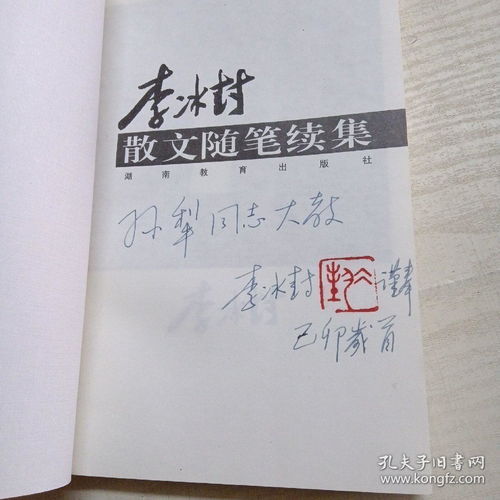 李冰封
散文随笔续集
湖南教育出版社
孙犁同志大教
李冰封 谨奉
己卯岁首
孔夫子旧书网
www.kongfz.com